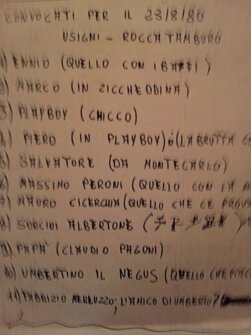 CONVOCATI PER IL 23/8/80
USIGNI = ROCCATAMBURO
1) ENNIO (QUELLO CON I BAFFI)
2) MARCO (IN ZICCHEDDINA)
3) PLAYBOY (CHICCO)
4) PIERO (IN PLAYBOY) (LA BRUTTA CO
5) SALVATORE (DA MONTECARLO)
6) MASSIMO PERONI (QUELLO CON LA
7) MAURO CICERCHIA (QUELLO CHE CE PROV
8) SORCINI ALBERTONE (
9) PAPÀ (CLAUDIO PAGONI)
10) UMBERTINO IL NEGUS (QUELLO CHE PIAC
11) FABRIZIO L'AMICO DI UMBERTO?